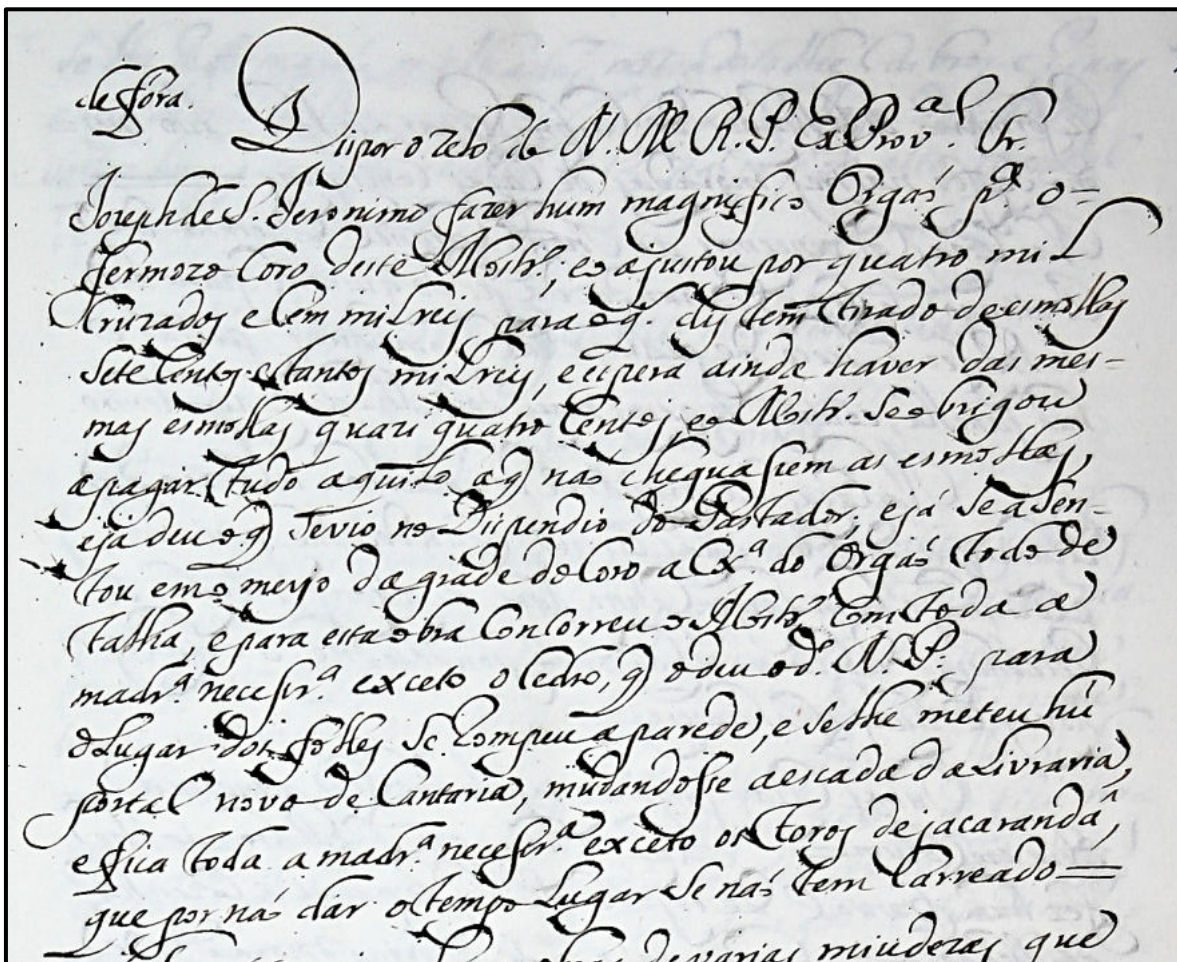 de fora.
Dispor o zelo de N. M. R. P. Ex Prov.al Fr.
Joseph de S. Jeronimo fazer hum magnifico Orgaõ p.a o
fermozo Coro deste Mostr.o, e o ajustou por quatro mil
Cruzados e Cem mil reis para o q. diz tem tirado de esmollas
sete Centos e tantos mil reis, e espera ainda haver das mes-
mas esmollas quazi quatro Centos, e o Mostr.o se obrigou
a pagar tudo aquilo a q̃ naõ chegassem as esmollas,
e ja deu o q̃ se vio no Dispendio do Gastador, e já se asen-
tou em o meyo da grade do Coro a Cx.a do Orgaõ todo de
talha, e para esta obra Concorreu o Mostr.o Com toda a
madr.a necessr.a exceto o Cedro, q̃ o deu o d.o N. P. para
o Lugar dos folles se Rompeu a parede, e se lhe meteu hũ
portal novo de Cantaria, mudandosse a escada da Livraria,
e fica toda a madr.a necessr.a exceto os toros de jacarandá,
que por naõ dar o tempo Lugar se naõ tem Carreado
obras de varias miudezas que